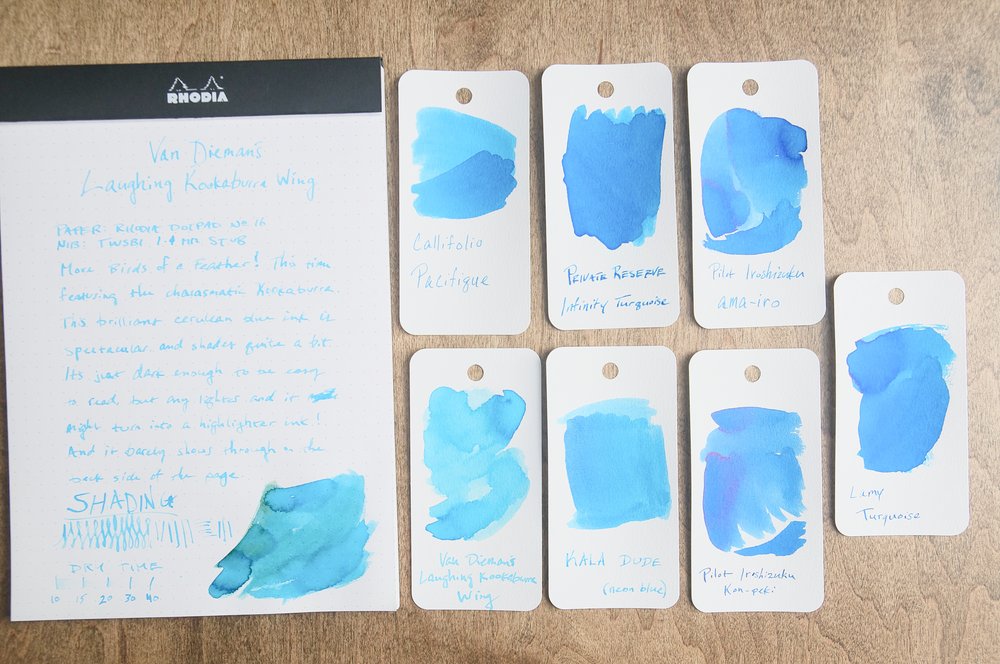 RHODIA
Van Dieman's
Laughing Kookaburra Wing
PAPER: RHODIA DOTPAD NO 16
NIB: TWSBI 1.1 MM STUB
More Birds of a Feather! This time
featuring the charasmatic Kookaburra.
This brilliant cerulean blue ink is
spectacular and shades quite a bit.
Its just dark enough to be easy
to read, but any lighter and it
might turn into a highlighter ink!
And it barely shows through on the
back side of the page.
SHADING
DRY TIME
10 15 20 30 40
Callifolio
Pacifique
PRIVATE RESERVE
Infinity Turquoise
Pilot Iroshizuku
ama-iro
Van Dieman's
Laughing Kookaburra
Wing
KALA DUDE
(neon blue)
Pilot Iroshizuku
Kon-peki
Lamy
Turquoise